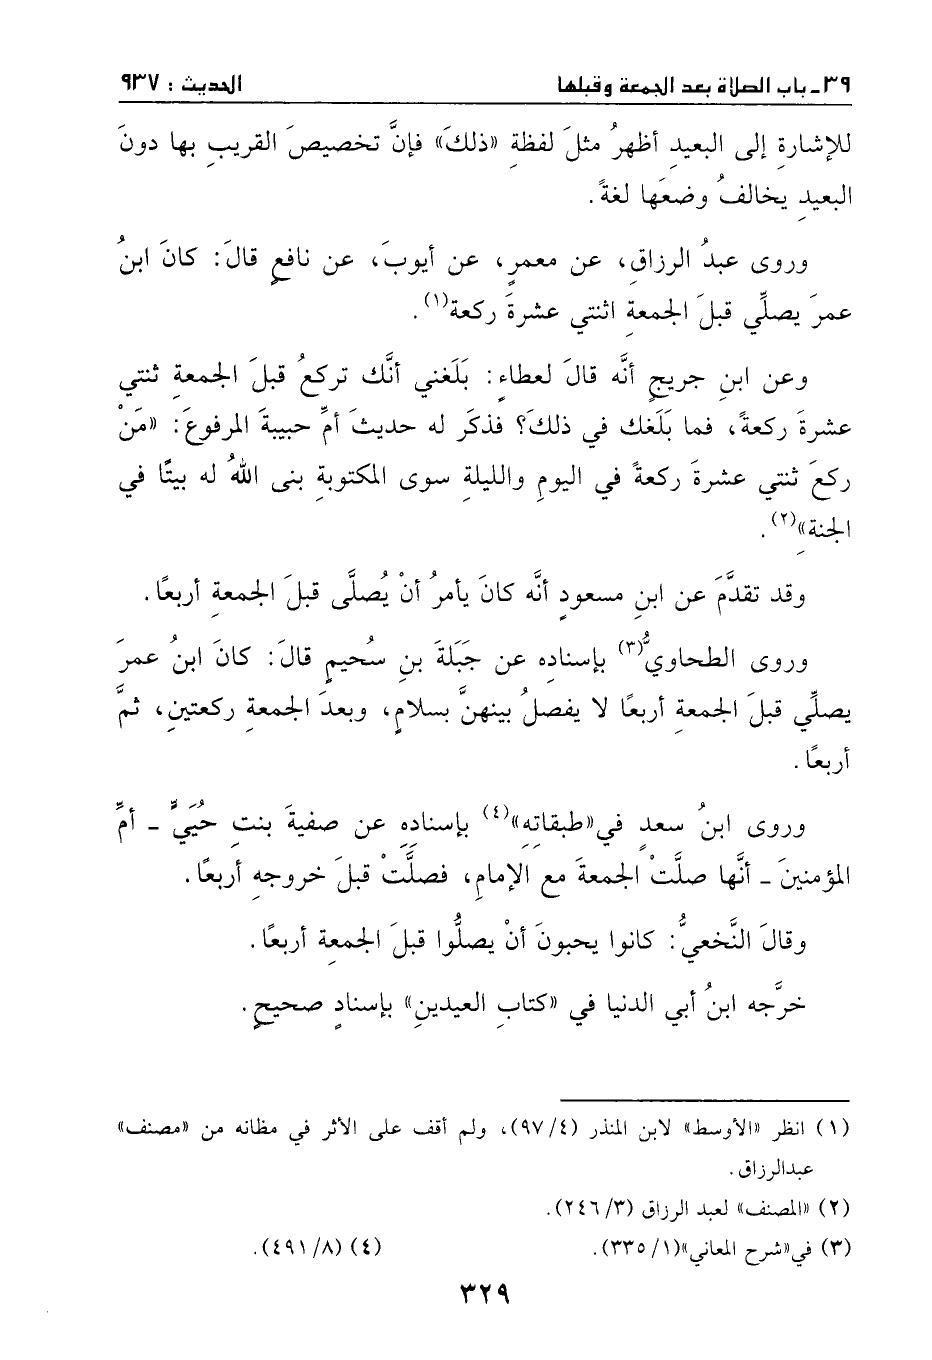 ٣٩ـ باب الصلاة بعد الجمعة وقبلها الحديث : ٩٣٧
للإشارةِ إلى البعيدِ أظهرُ مثلَ لفظةِ «ذلكَ» فإنَّ تخصيصَ القريبِ بها دونَ
البعيدِ يخالفُ وضعَها لغةً .
وروى عبدُ الرزاقِ، عن معمرٍ، عن أيوبَ، عن نافعٍ قالَ: كانَ ابنُ
عمرَ يصلِّي قبلَ الجمعةِ اثنتي عشرةَ ركعة(١) .
وعن ابنِ جريجٍ أنَّه قالَ لعطاءٍ: بَلَغني أنَّك تركعُ قبلَ الجمعةِ ثنتي
عشرةَ ركعةً، فما بَلَغك في ذلكَ؟ فذكَر له حديثَ أمِّ حبيبةَ المرفوعَ: «مَنْ
ركعَ ثنتي عشرةَ ركعةً في اليومِ والليلةِ سوى المكتوبةِ بنى اللهُ له بيتًا في
الجنةِ»(٢) .
وقد تقدَّمَ عن ابنِ مسعودٍ أنَّه كانَ يأمرُ أنْ يُصلَّى قبلَ الجمعةِ أربعًا .
وروى الطحاويُّ(٣) بإسنادِه عن جَبَلَةَ بنِ سُحيمٍ قالَ: كانَ ابنُ عمرَ
يصلِّي قبلَ الجمعةِ أربعًا لا يفصلُ بينهنَّ بسلامٍ، وبعدَ الجمعةِ ركعتينِ، ثمَّ
أربعًا .
وروى ابنُ سعدٍ في «طبقاتِه»(٤) بإسنادِه عن صفيةَ بنتِ حُيَيٍّ ـ أمِّ
المؤمنينَ ـ أنَّها صلَّتْ الجمعةَ مع الإمامِ، فصلَّتْ قبلَ خروجِه أربعًا .
وقالَ النَّخعيُّ: كانوا يحبونَ أنْ يصلُّوا قبلَ الجمعةِ أربعًا .
خرَّجه ابنُ أبي الدنيا في «كتابِ العيدينِ» بإسنادٍ صحيحٍ .
(١) انظر «الأوسط» لابن المنذر (٤/ ٩٧)، ولم أقف على الأثر في مظانه من «مصنف»
عبدالرزاق .
(٢) «المصنف» لعبد الرزاق (٣/ ٢٤٦) .
(٣) في «شرح المعاني» (١/ ٣٣٥). (٤) (٨/ ٤٩١) .
٣٢٩